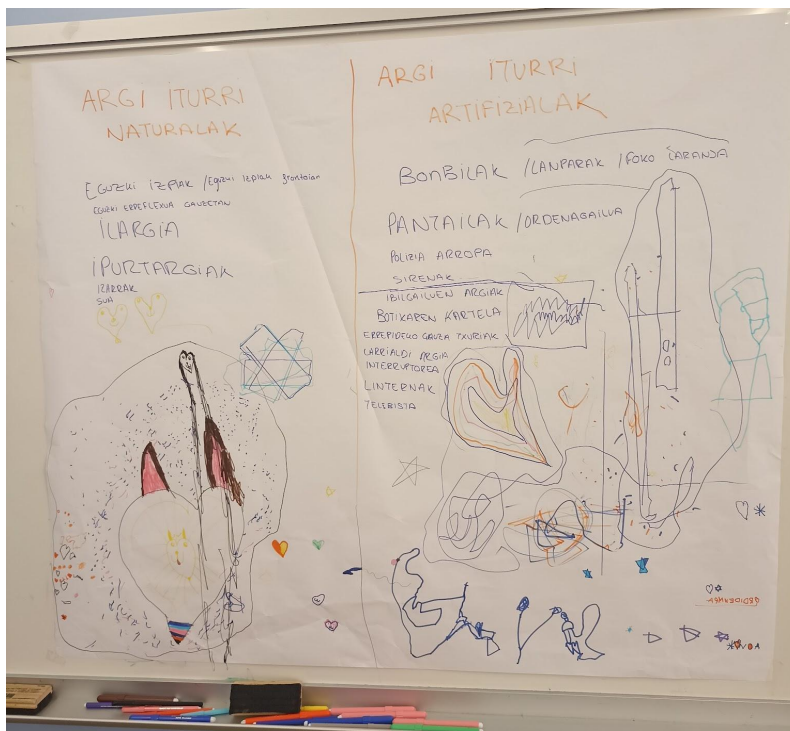 ARGI ITURRI
NATURALAK
EGUZKI IZPIAK /EGUZKI IZPIAK frontoian
EGUZKI ERREFLEXUA GAUZETAN
ILARGIA
IPURTARGIAK
IZARRAK
SUA
ARGI ITURRI
ARTIFIZIALAK
BONBILAK /LANPARAK /FOKO LARANJA
PANTAILAK /ORDENAGAILUA
POLIZIA ARROPA
SIRENAK
IBILGAILUEN ARGIAK
BOTIKAREN KARTELA
ERREPIDEKO GAUZA TXURIAK
LARRIALDI ARGIA
INTERRUPTOREA
LINTERNAK
TELEBISTA